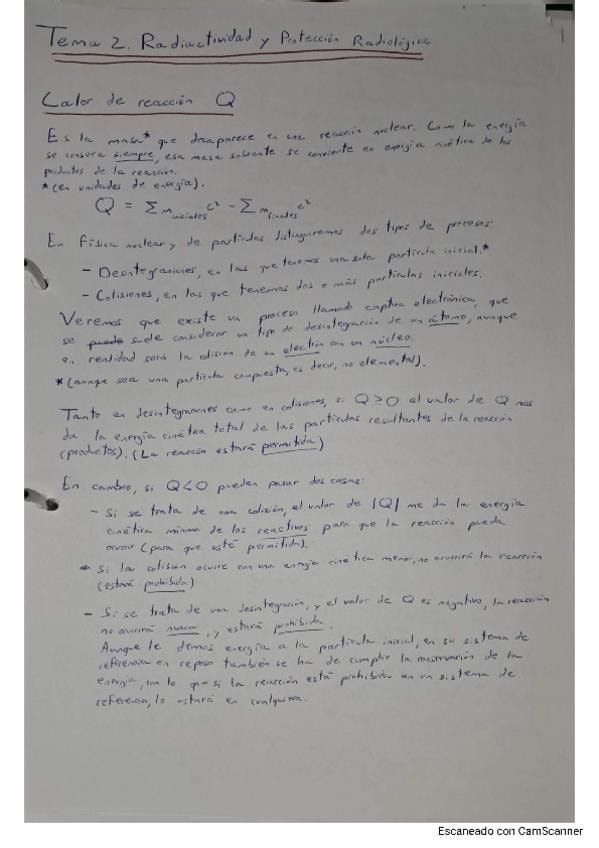 Tema 2. Radiactividad y Protección Radiológica
Calor de reacción Q
Es la masa* que desaparece en una reacción nuclear. Como la energía
se conserva siempre, esa masa sobrante se convierte en energía cinética de los
productos de la reacción.
*(en unidades de energía).
Q = Σ m iniciales c² - Σ m finales c²
En Física nuclear y de partículas distinguiremos dos tipos de procesos:
- Desintegraciones, en las que tenemos una sola partícula inicial.*
- Colisiones, en las que tenemos dos o más partículas iniciales.
Veremos que existe un proceso llamado captura electrónica, que
se puede suele considerar un tipo de desintegración de un átomo, aunque
en realidad será la colisión de un electrón con un núcleo.
*(aunque sea una partícula compuesta, es decir, no elemental).
Tanto en desintegraciones como en colisiones, si Q ≥ 0 el valor de Q nos
da la energía cinética total de las partículas resultantes de la reacción
(productos). (La reacción estará permitida)
En cambio, si Q<0 pueden pasar dos cosas:
- Si se trata de una colisión, el valor de |Q| me da la energía
cinética mínima de los reactivos para que la reacción pueda
ocurrir (para que esté permitida).
Si la colisión ocurre con una energía cinética menor, no ocurrirá la reacción
(estará prohibida)
- Si se trata de una desintegración, y el valor de Q es negativo, la reacción
no ocurrirá nunca, y estará prohibida.
Aunque le demos energía a la partícula inicial, en su sistema de
referencia en reposo también se ha de cumplir la conservación de la
energía, con lo que si la reacción está prohibida en un sistema de
referencia, lo estará en cualquiera.
Escaneado con CamScanner